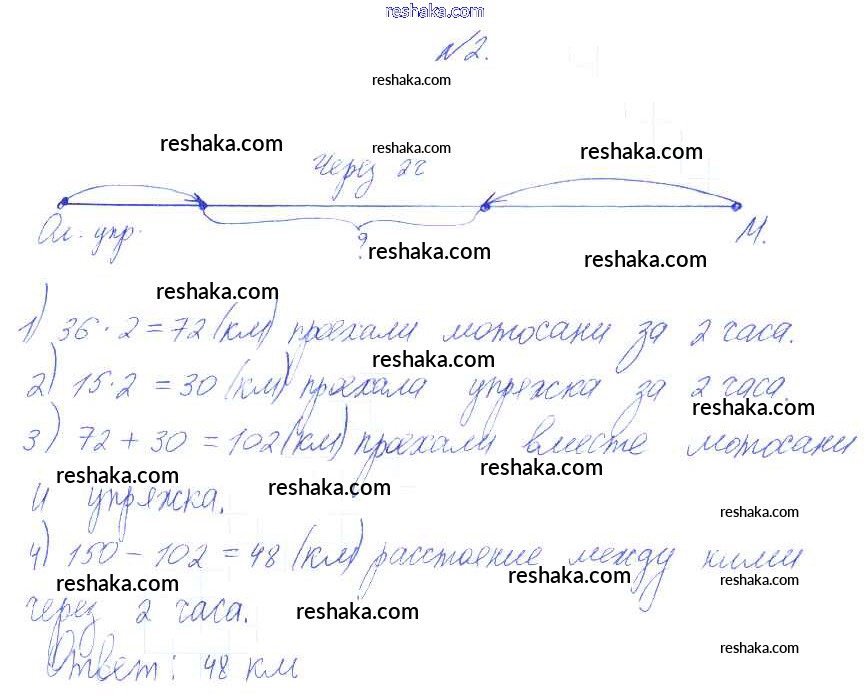 reshaka.com
№2.
reshaka.com
reshaka.com
reshaka.com
reshaka.com
Через 2ч
Ол. упр.
?
М.
reshaka.com
reshaka.com
reshaka.com
1) 36 · 2 = 72 (км) проехали мотосани за 2 часа.
reshaka.com
2) 15 · 2 = 30 (км) проехала упряжка за 2 часа.
reshaka.com
3) 72 + 30 = 102 (км) проехали вместе мотосани
reshaka.com
reshaka.com
reshaka.com
и упряжка.
reshaka.com
4) 150 - 102 = 48 (км) расстояние между ними
reshaka.com
reshaka.com
reshaka.com
через 2 часа.
reshaka.com
reshaka.com
Ответ: 48 км